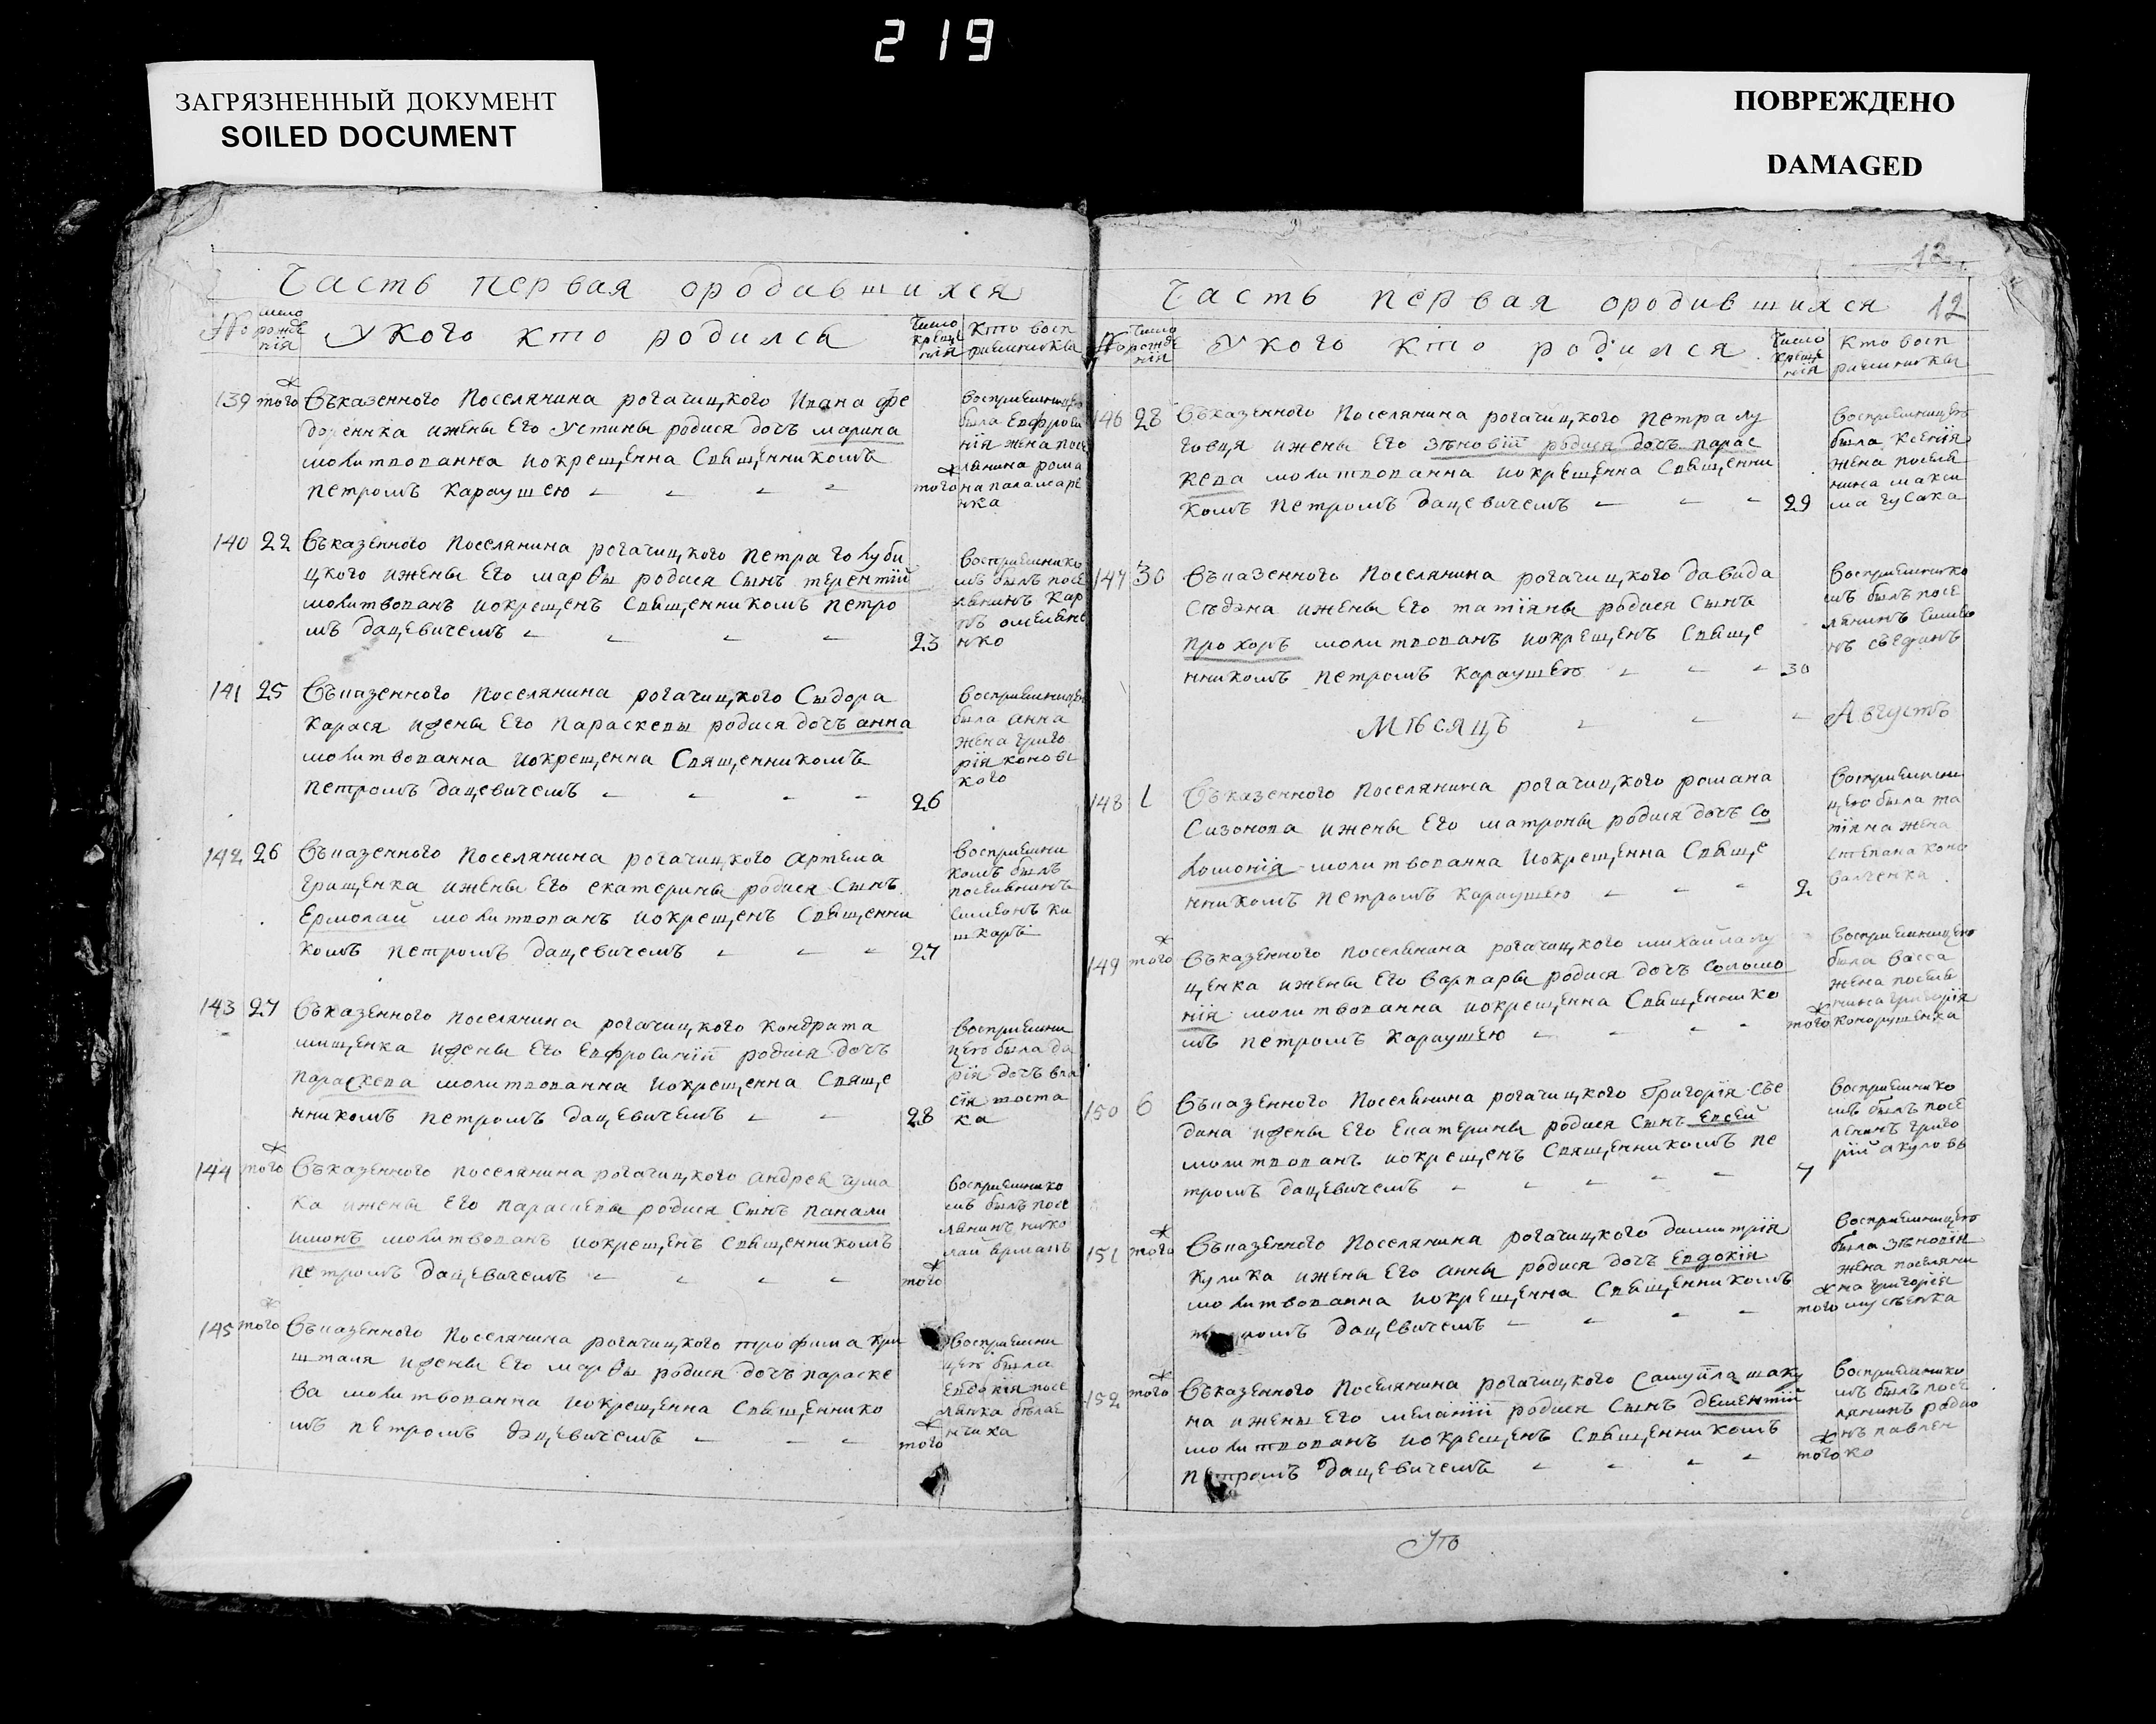 219
ЗАГРЯЗНЕННЫЙ ДОКУМЕНТ
SOILED DOCUMENT
ПОВРЕЖДЕНО
DAMAGED
Часть первая ородившихся
№ число рожде нія
У кого кто родился
число креще нія
кто восп риемники
139 того
Въказенного Поселянина рогачицкого Ивана фе
доренка ижены Его Устины родися дочъ марина
молитвованна иокрещенна Священникомъ
петромъ Караушею
того
восприемницею
была Евфроси
нія жена посе
лянина рома
на паламаре
нка
140 22
Въказенного Поселянина рогачицкого Петра голуби
цкого ижены Его марѳы родися Сынъ терентій
молитвованъ иокрещенъ Священникомъ петро
мъ дацевичемъ
23
восприемнико
мъ былъ посе
лянинъ кар
пъ омеляне
нко
141 25
Въказенного Поселянина рогачицкого Сыдора
карася ижены Его Параскевы родися дочъ анна
молитвованна иокрещенна Священникомъ
петромъ дацевичемъ
26
восприемницею
была анна
жена григо
рія конове
кого
142 26
Въказенного Поселянина рогачицкого артема
гращенка ижены Его екатерины родися Сынъ
Ермолай молитвованъ иокрещенъ Священни
комъ петромъ дацевичемъ
27
восприемни
комъ былъ
поселянинъ
симеонъ ки
шкаръ
143 27
Въказенного Поселянина рогачицкого Кондрата
мищенка ижены Его Евфросиніи родися дочъ
параскева молитвованна иокрещенна Свяще
нникомъ петромъ дацевичемъ
28
восприемни
цею была да
рія дочъ вла
сія тоста
ка
144 того
Въказенного Поселянина рогачицкого андрея чума
ка ижены Его параскевы родися Сынъ панали
имонъ молитвованъ иокрещенъ Священникомъ
петромъ дацевичемъ
того
восприемнико
мъ былъ посе
лянинъ нико
лай ерманъ
145 того
Въказенного Поселянина рогачицкого трофима кри
шталя ижены Его марѳы родися дочъ параске
ва молитвованна иокрещенна Священнико
мъ петромъ дацевичемъ
того
восприемни
цею была
Евдокія посе
лянка бѣлае
нчиха
12
Часть первая ородившихся 12
№ число рожде нія
У кого кто родился
число креще нія
кто восп риемники
146 28
Въказенного Поселянина рогачицкого петра лу
говця ижены Его зѣновіи родися дочъ парас
кева молитвованна иокрещенна Священни
комъ петромъ дацевичемъ
29
восприемницею
была ксенія
жена поселя
нина макси
ма гусака
147 30
Въказенного Поселянина рогачицкого давида
Сѣдана ижены Его татіяны родися Сынъ
прохоръ молитвованъ иокрещенъ Свяще
нникомъ петромъ караушею
30
восприемнико
мъ былъ посе
лянинъ симео
нъ сѣеданъ
Мѣсяцъ Августъ
148 1
Въказенного Поселянина рогачицкого романа
Сизонова ижены Его матроны родися дочъ со
ломонія молитвованна иокрещенна Свяще
нникомъ петромъ караушею
2
восприемни
цею была та
тіяна жена
степана коно
валченка
149 того
Въказенного Поселянина рогачицкого михайла лу
ценка ижены Его варвары родися дочъ соломо
нія молитвованна иокрещенна Священнико
мъ петромъ караушею
того
восприемницею
была васса
жена поселя
нина григорія
конорушенка
150 6
Въказенного Поселянина рогачицкого Григорія сѣе
дана ижены Его Екатерины родися Сынъ Евсей
молитвованъ иокрещенъ Священникомъ пе
тромъ дацевичемъ
7
восприемнико
мъ былъ посе
лянинъ григо
рій акуловъ
151 того
Въказенного Поселянина рогачицкого димитрія
кулика ижены Его анны родися дочъ Евдокія
молитвованна иокрещенна Священникомъ
петромъ дацевичемъ
того
восприемницею
была зѣновія
жена поселяни
на григорія
мусѣенка
152 того
Въказенного Поселянина рогачицкого Самуила шаку
на ижены Его меланіи родися Сынъ дементій
молитвованъ иокрещенъ Священникомъ
петромъ дацевичемъ
того
восприемнико
мъ былъ посе
лянинъ родио
нъ павлен
ко